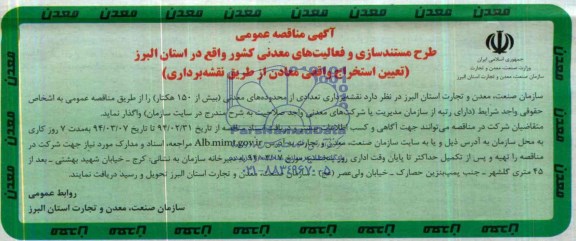 آگهی مناقصه عمومی
طرح مستندسازی و فعالیت‌های معدنی کشور واقع در استان البرز
(تعیین استخراج واقعی معادن از طریق نقشه‌برداری)
جمهوری اسلامی ایران
وزارت صنعت، معدن و تجارت
سازمان صنعت، معدن و تجارت استان البرز
سازمان صنعت، معدن و تجارت استان البرز در نظر دارد نقشه‌برداری تعدادی از محدوده‌های معدنی (بیش از ۱۵۰ هکتار) را از طریق مناقصه عمومی به اشخاص
حقوقی واجد شرایط (دارای رتبه از سازمان مدیریت یا شرکت‌های معدنی واجد صلاحیت به شرح مندرج در سایت سازمان) واگذار نماید.
متقاضیان شرکت در مناقصه می‌توانند جهت آگاهی و کسب از تاریخ ۹۴/۰۲/۳۱ تا تاریخ ۹۴/۰۳/۰۷ بمدت ۷ روز کاری
به محل سازمان به آدرس ذیل و یا به سایت سازمان صنعت، معدن و تجارت به آدرس Alb.mimt.gov.ir مراجعه، اسناد و مدارک مورد نیاز جهت شرکت در
مناقصه را تهیه و پس از تکمیل حداکثر تا پایان وقت اداری روز به دبیرخانه سازمان به نشانی: کرج - خیابان شهید بهشتی - بعد از
۴۵ متری گلشهر - جنب پمپ‌بنزین حصارک - خیابان ولی‌عصر معدن و تجارت استان البرز تحویل و رسید دریافت نمایند.
روابط عمومی
سازمان صنعت، معدن و تجارت استان البرز